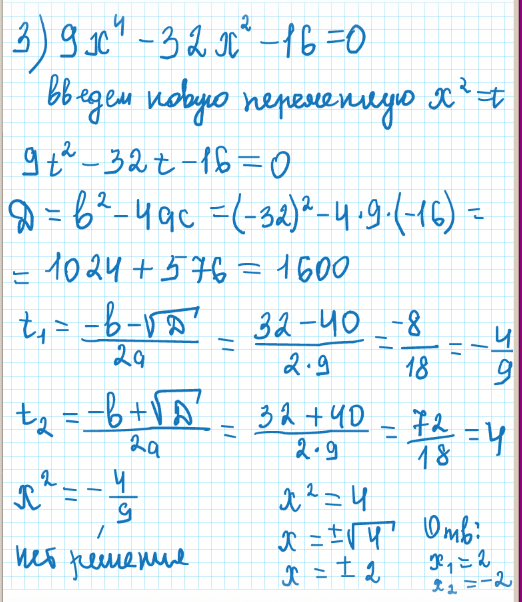 3) 9x⁴ - 32x² - 16 = 0
введем новую переменную x² = t
9t² - 32t - 16 = 0
D = b² - 4ac = (-32)² - 4·9·(-16) =
= 1024 + 576 = 1600
t₁ = (-b - √D)/2a = (32 - 40)/(2·9) = -8/18 = -4/9
t₂ = (-b + √D)/2a = (32 + 40)/(2·9) = 72/18 = 4
x² = -4/9
нет решение
x² = 4
x = ±√4
x = ± 2
Отв:
x₁ = 2
x₂ = -2